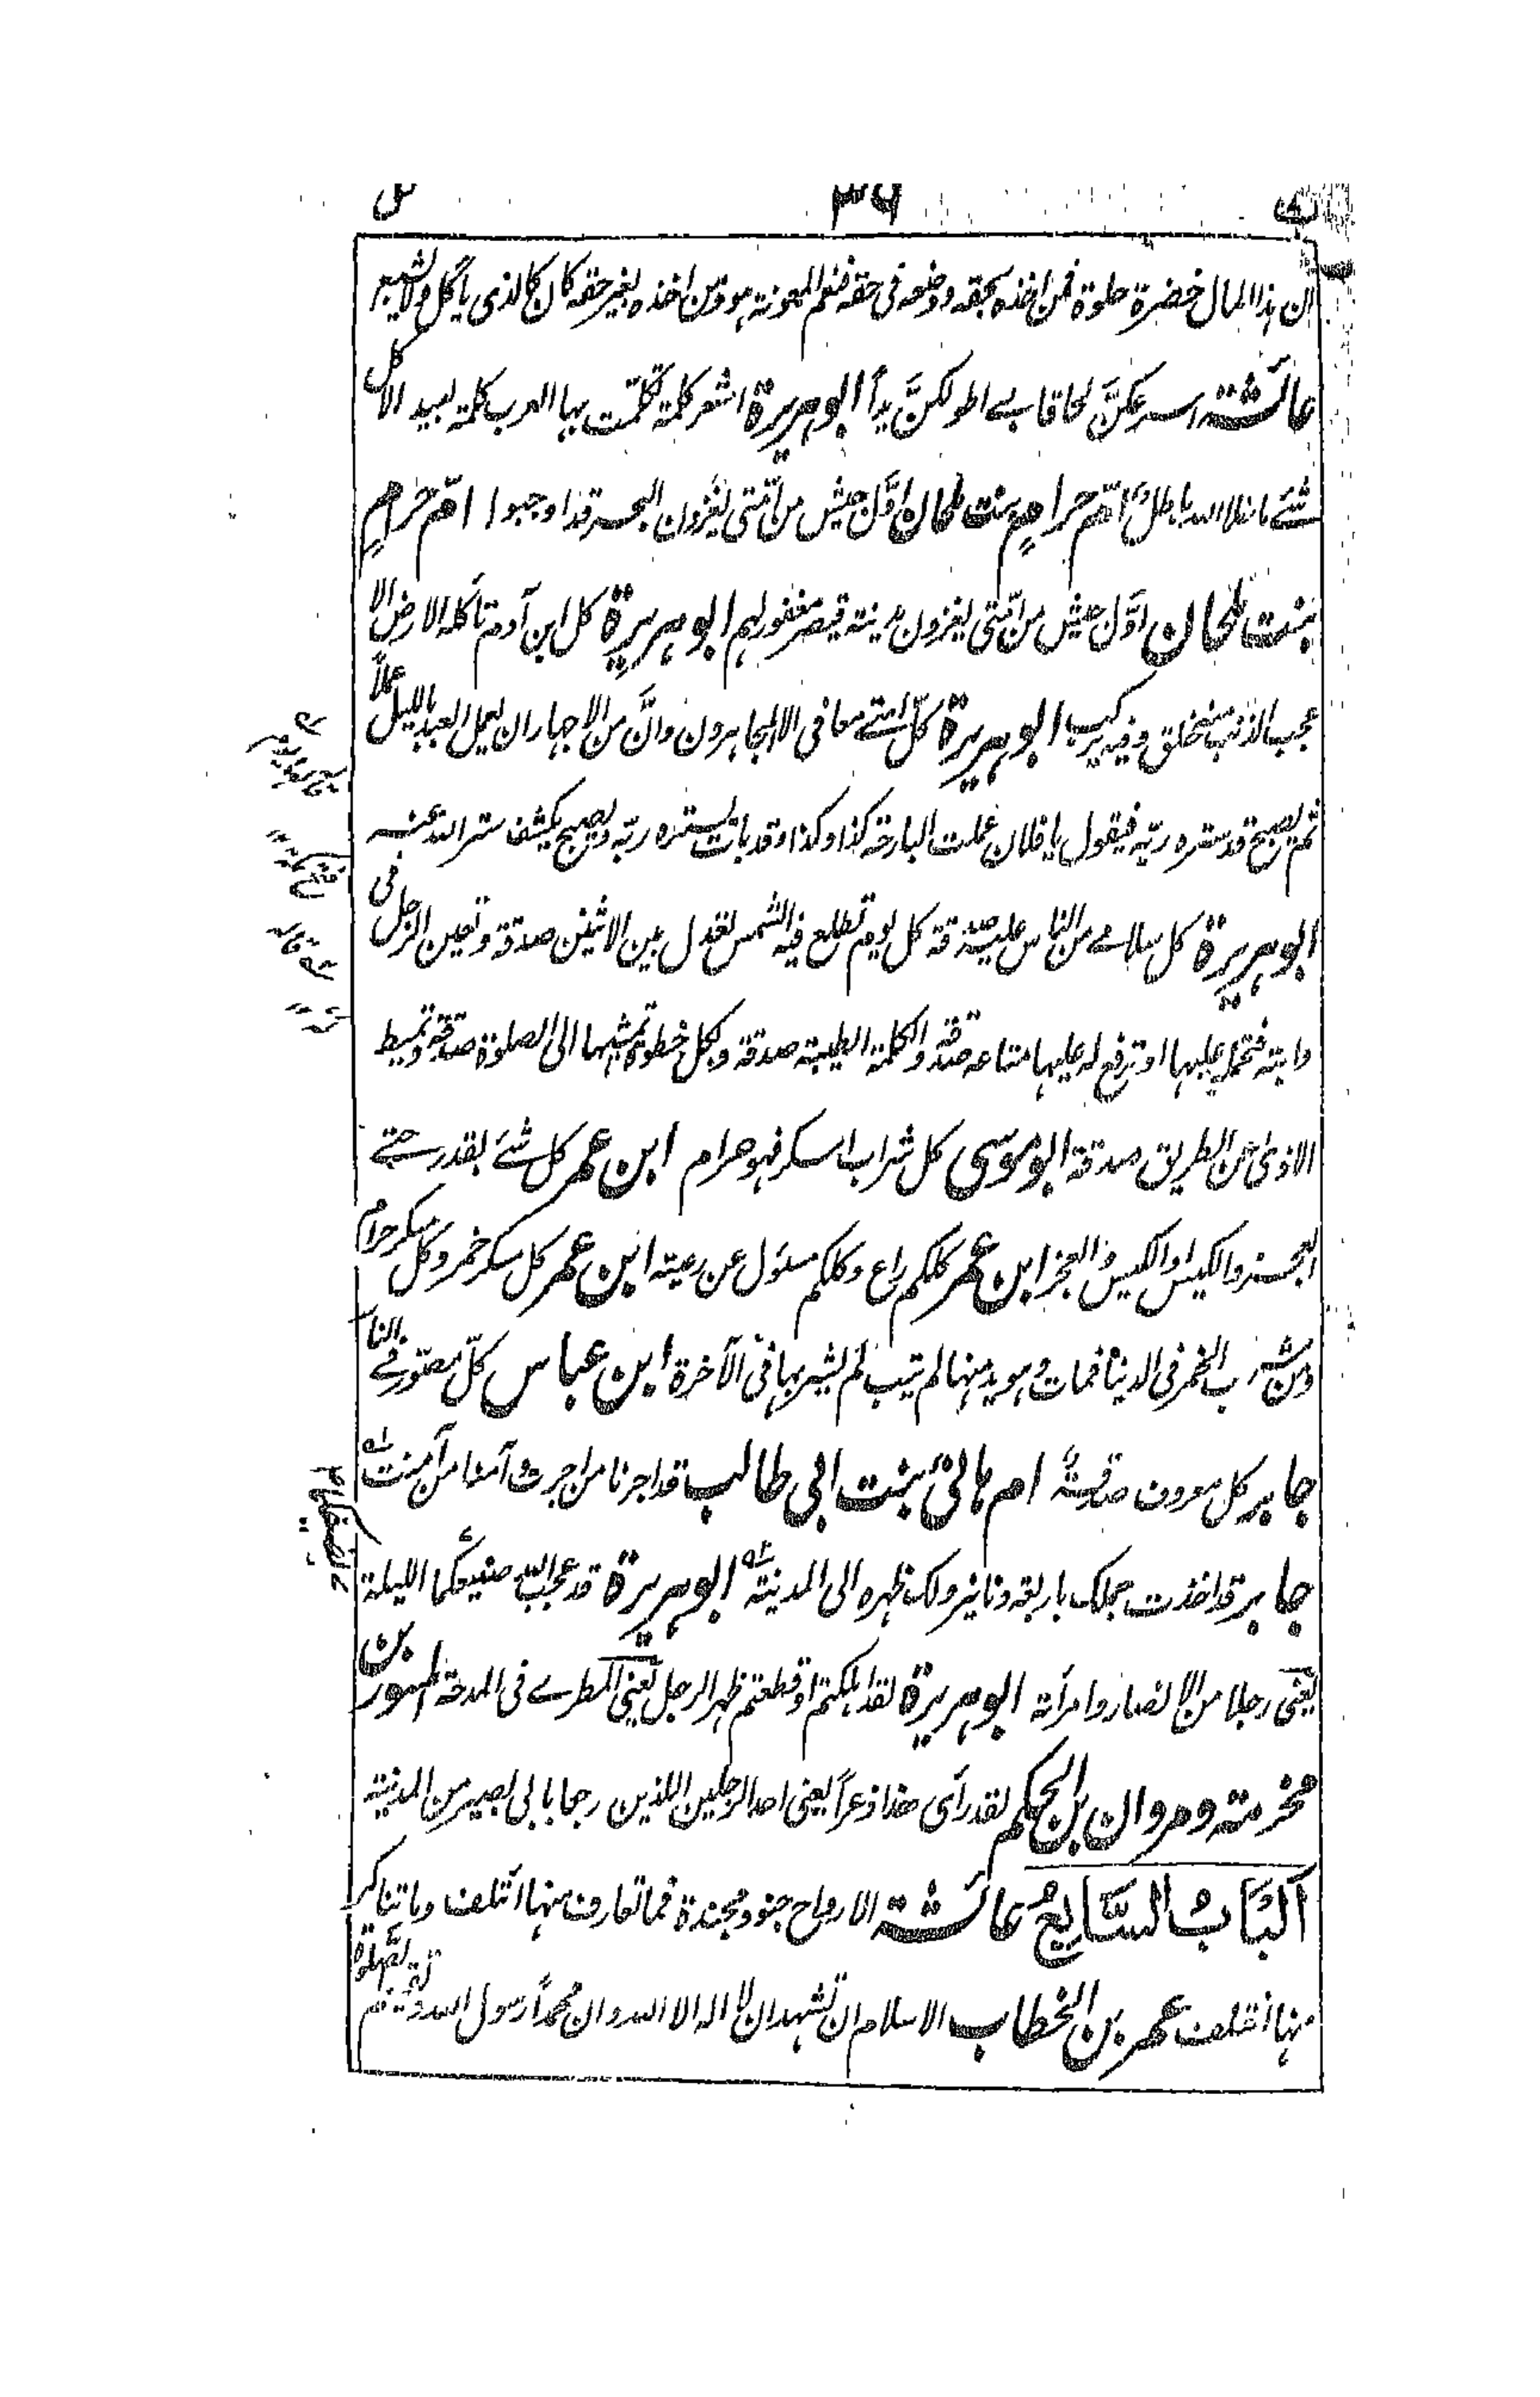 ٣٦
ان هذا المال خضرة حلوة فمن اخذه بحقه ووضعه فى حقه فنعم المعونة هو ومن اخذه بغير حقه كان كالذى ياكل ولا يشبع
عائشة اسرعكنَّ لحاقا بے اطولكنَّ يداً ابوهريرة اشعر كلمة تكلّمت بها العرب كلمة لبيد الا كل
شئے ما خلا الله باطل امّ حرامٍ بنت ملحان اوّل جيش من امّتى يغزون البحر قد اوجبوا امّ حرامٍ
بنت ملحان اوّل جيش من امّتى يغزون مدينة قيصر مغفور لهم ابوهريرة كل ابن آدم تأكله الارض الا
عجب الذنب منه خلق وفيه يركب ابوهريرة كلّ امتے معافى الا المجاهرون وانَّ من الاجهار ان يعمل العبد بالليل عملاً
ثم يصبح قد ستره ربّه فيقول يا فلان عملت البارحة كذا وكذا وقد بات يستره ربّه ويصبح يكشف ستر الله عنه
ابوهريرة كل سلامے من الناس عليه صدقة كل يوم تطلع فيه الشمس تعدل بين الاثنين صدقة وتعين الرجل فى
دابته فتحمله عليها او ترفع له عليها متاعه صدقة والكلمة الطيبة صدقة وبكل خطوة تمشيها الى الصلوة صدقة وتميط
الاذى عن الطريق صدقة ابوموسى كل شراب اسكر فهو حرام ابن عمر كل شئے بقدر حتے
العجز والكيس او الكيس والعجز ابن عمر كلكم راع وكلكم مسئول عن رعيته ابن عمر كل مسكر خمر وكل مسكر حرام
ومن شرب الخمر فى الدينا فمات وهو يدمنها لم يتب لم يشربها فى الآخرة ابن عباس كلّ مصوّر فے النار
جابر كل معروف صدقة ام هانئ بنت ابى طالب قد اجرنا من اجرت وآمنا من آمنت
جابر قد اخذت جملك باربعة دنانير ولك ظهره الى المدينة ابوهريرة قد عجب الله من صنيعكما الليلة
يعنى رجلا من الانصار وامرأته ابوهريرة لقد اهلكتم او قطعتم ظهر الرجل يعنى المطرے فى المدحة المسور بن
مخرمة ومروان بن الحكم لقد رأى هذا ذعراً يعنى احد الرجلين اللذين رجعا بابى بصير من المدينة
اَلبَابُ السَّابِعُ عائشة الارواح جنود مجندة فما تعارف منها ائتلف وما تناكر
منها اختلف عمر بن الخطاب الاسلام ان تشهد ان لا اله الا الله وان محمداً رسول الله وتقيم الصلوة